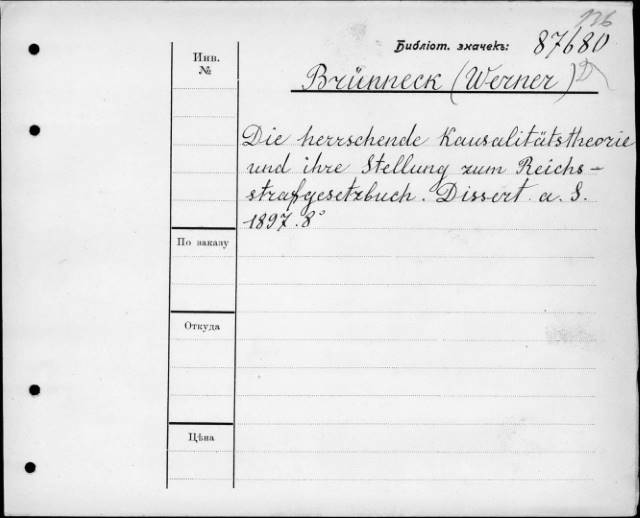 136
Библіот. значекъ: 87680
Инв.
№
Brünneck (Werner)
Die herrschende Kausalitätstheorie
und ihre Stellung zum Reichs-
strafgesetzbuch. Dissert. a. S.
1897. 8°
По заказу
Откуда
Цѣна